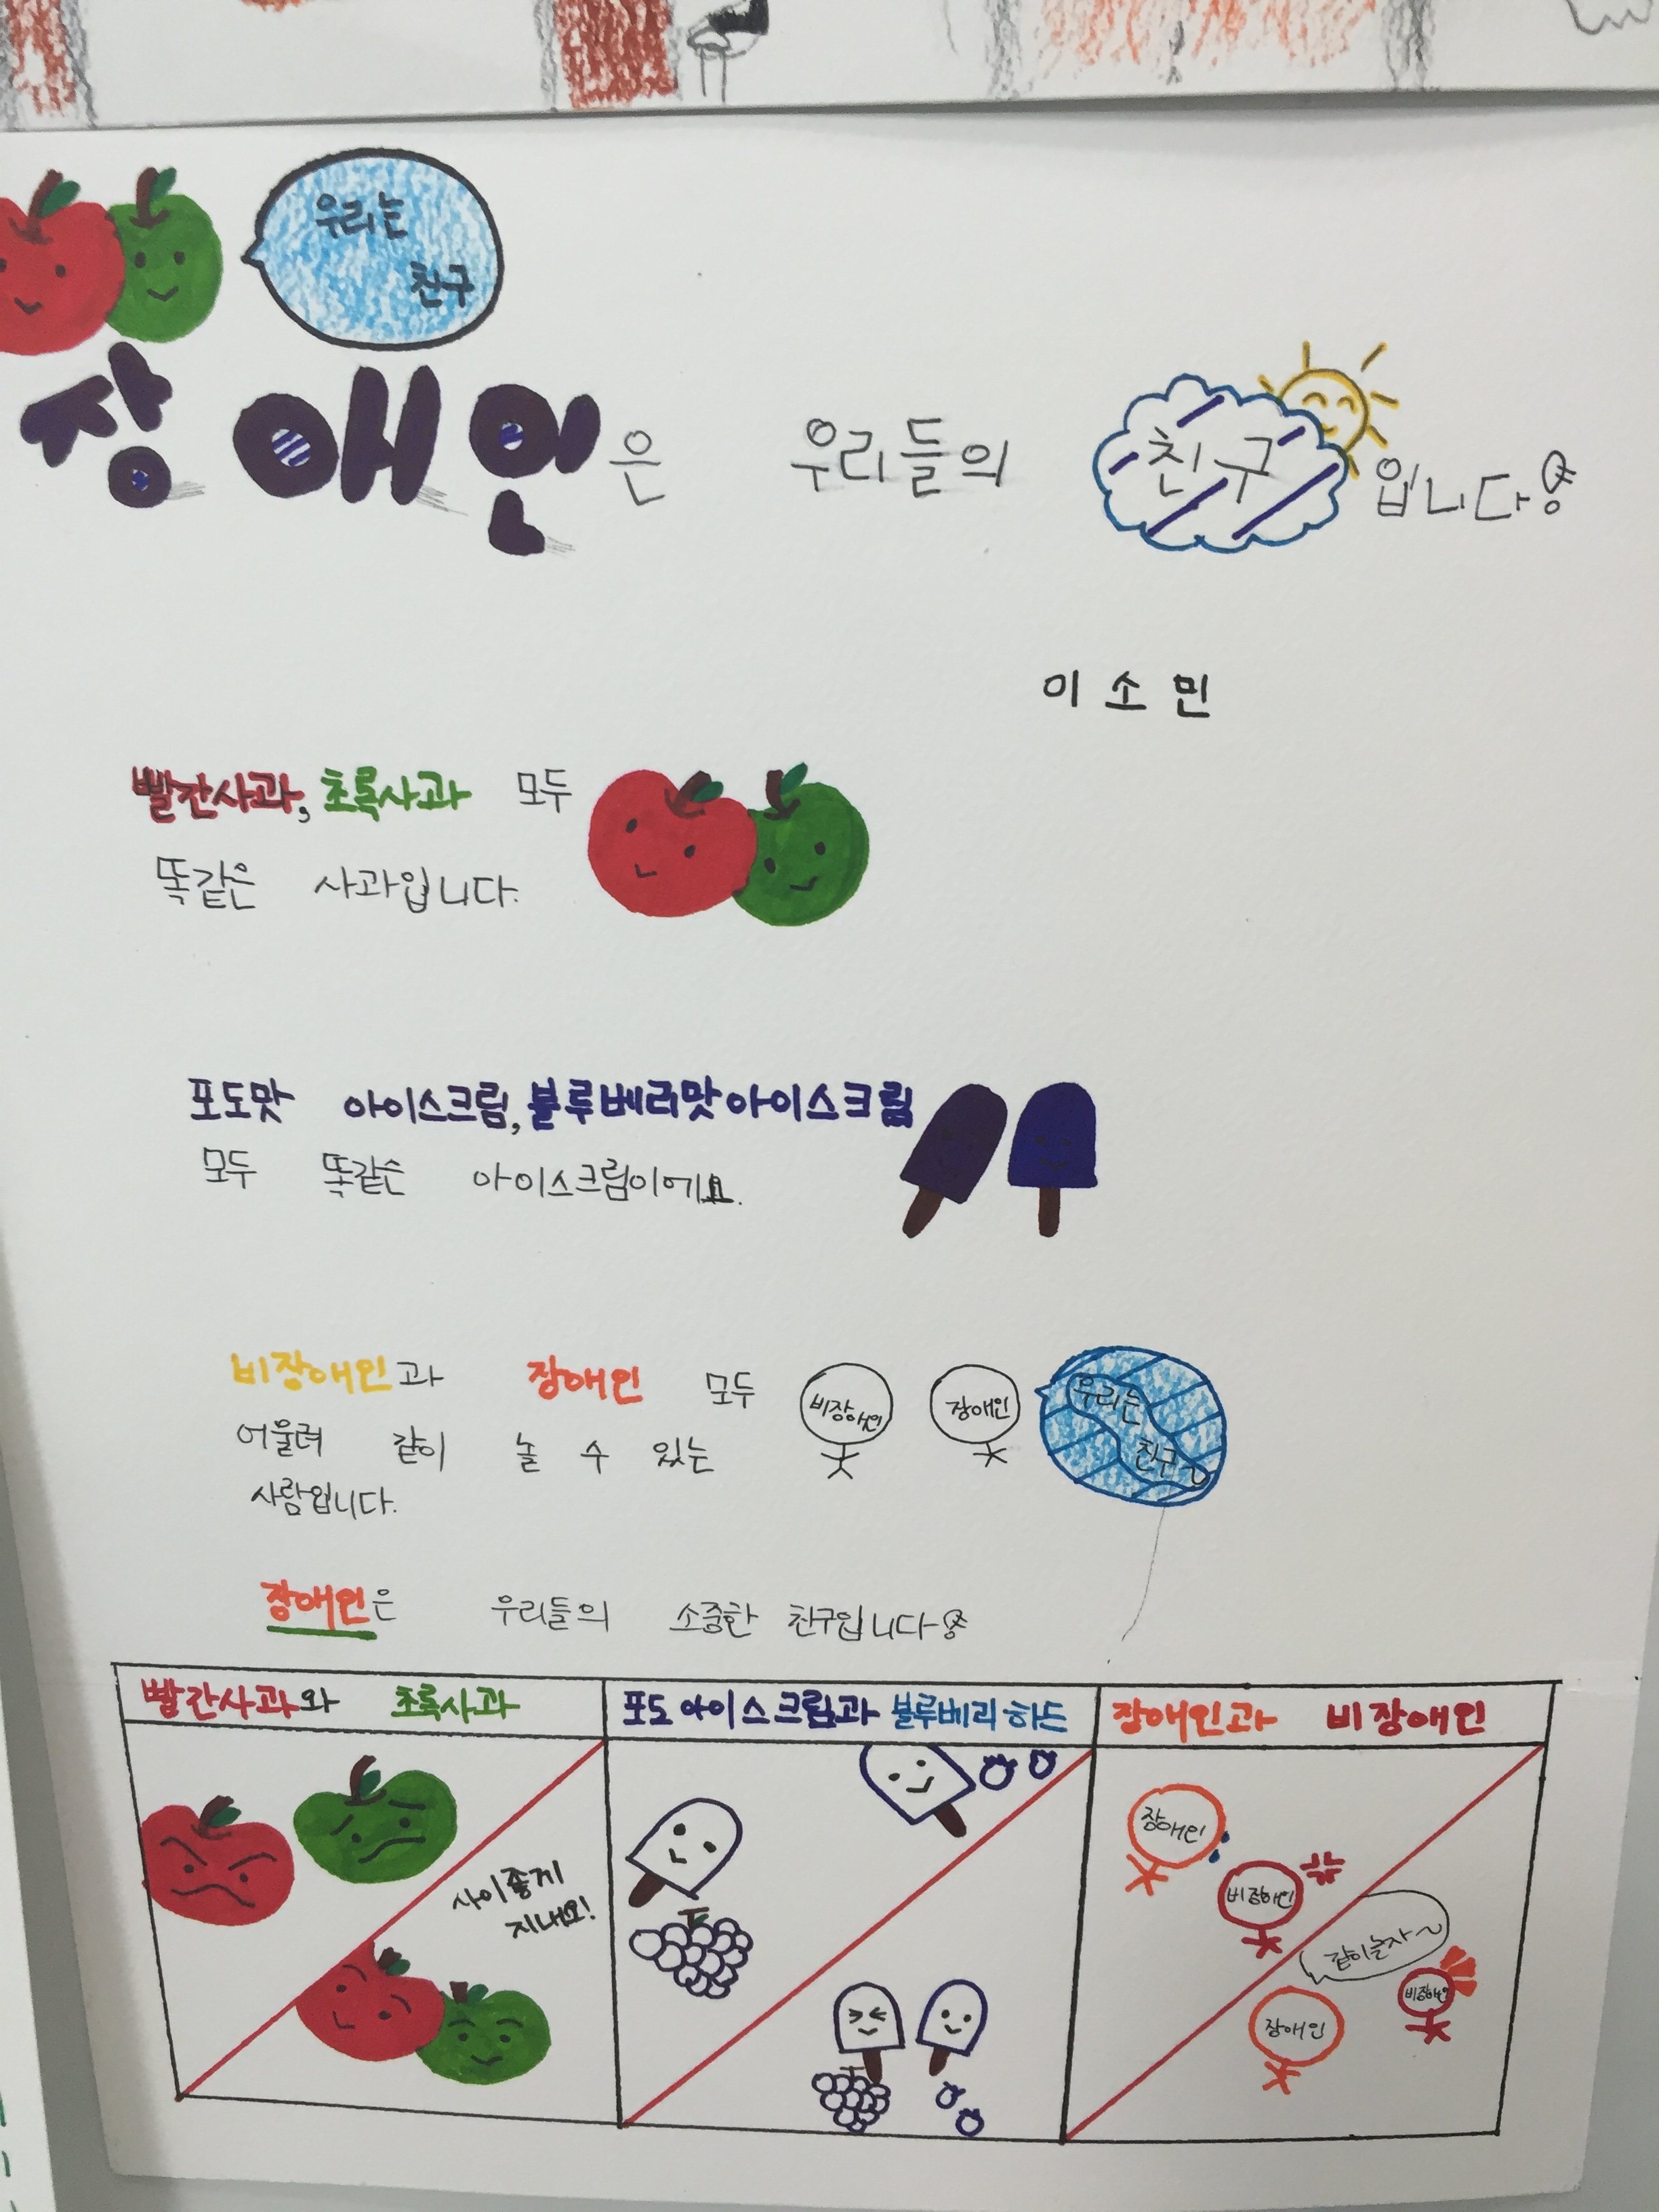 우리는
친구
장애인은 우리들의 친구입니다!
이소민
빨간사과, 초록사과 모두
똑같은 사과입니다.
포도맛 아이스크림, 블루베리맛아이스크림
모두 똑같은 아이스크림이에요.
비장애인과 장애인 모두
어울려 같이 놀 수 있는
사람입니다.
비장애인
장애인
우리는
친구~
장애인은 우리들의 소중한 친구입니다!
빨간사과와 초록사과
포도 아이스크림과 블루베리 하드
장애인과 비장애인
사이좋게
지내요!
장애인
비장애인
같이놀자~
장애인
비장애인